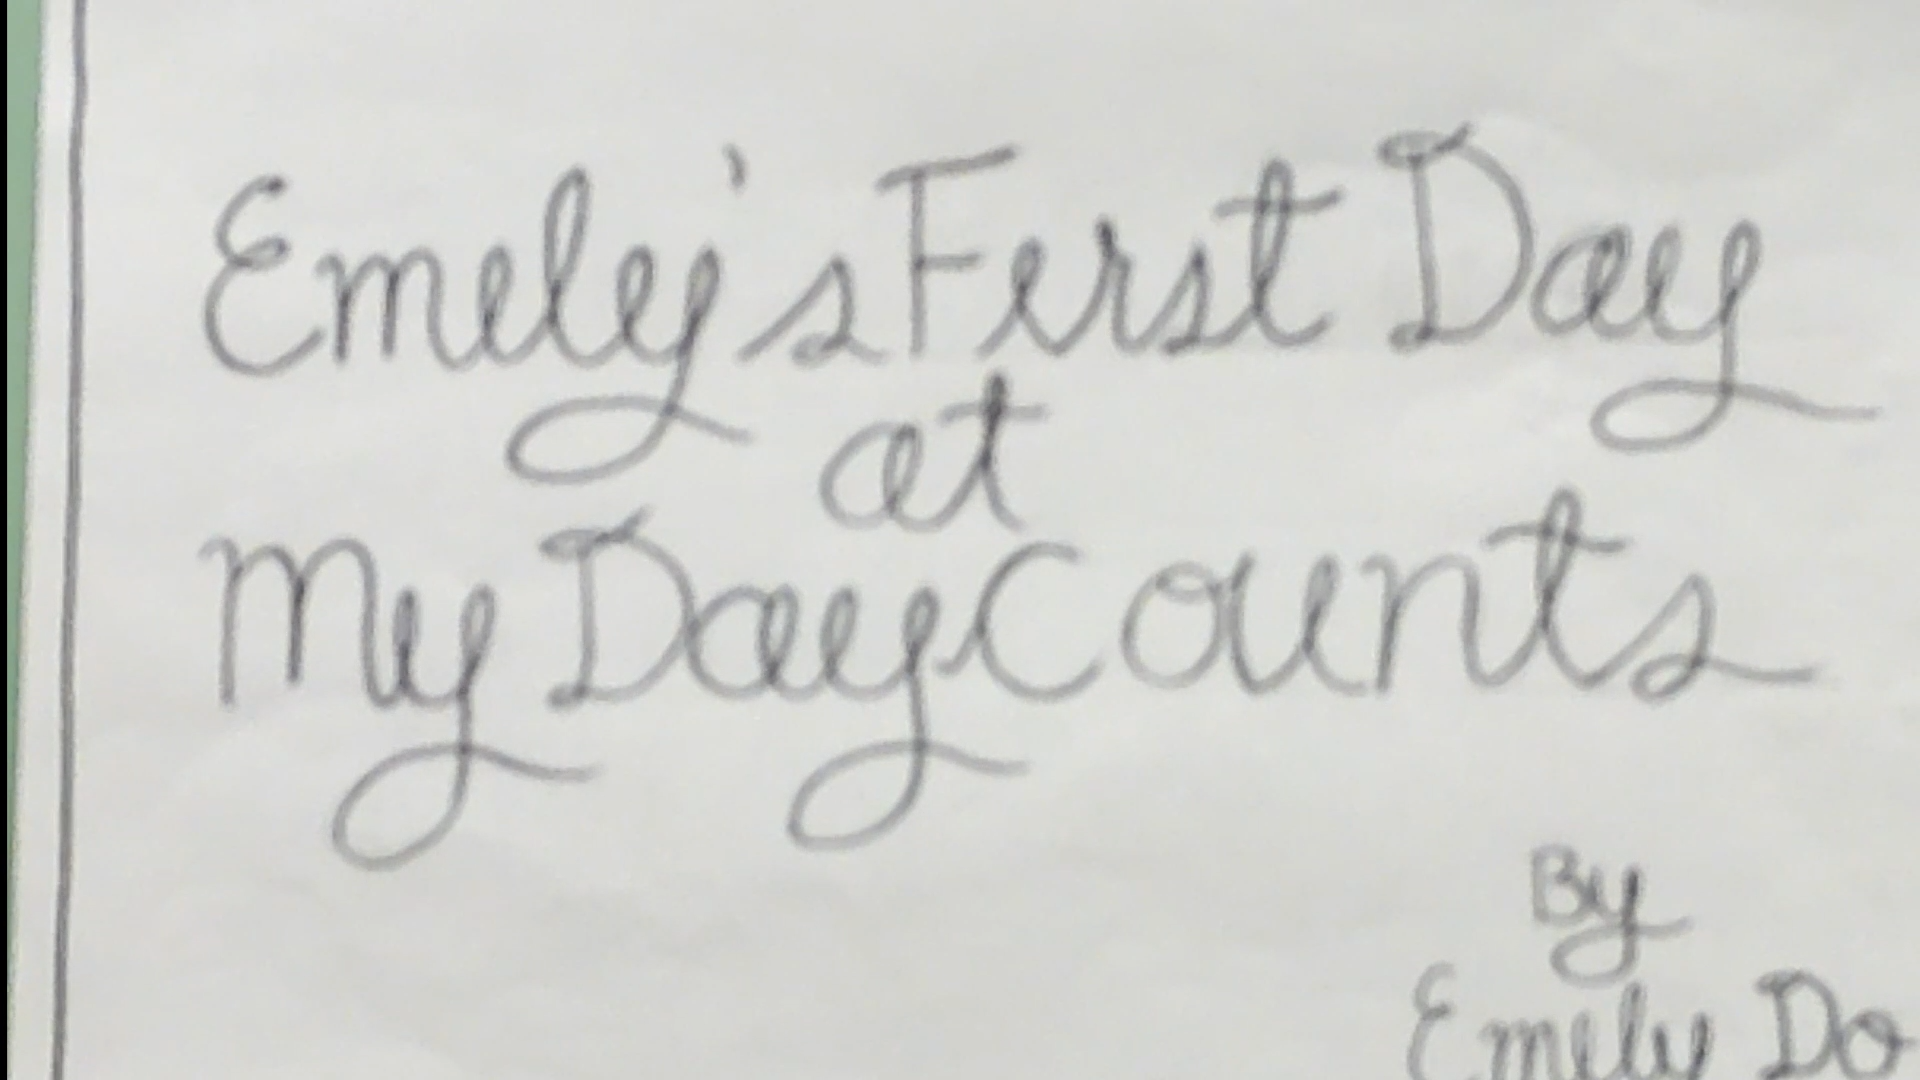 Emily's First Day
at
My Day Counts
By
Emily Do